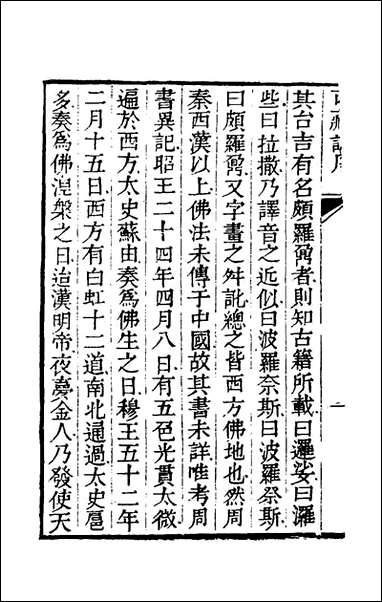 其台吉有名頗羅鼐者則知古籍所載曰邏娑曰邏
些曰拉撒乃譯音之近似曰波羅奈斯曰波羅奈斯
曰頗羅鼐又字畫之舛訛總之皆西方佛地也然周
秦西漢以上佛法未傳于中國故其書未詳唯考周
書異記昭王二十四年四月八日有五色光貫太微
遍於西方太史蘇由奏爲佛生之日穆王五十二年
二月十五日西方有白虹十二道南北通過太史扈
多奏爲佛湼槃之日迨漢明帝夜夢金人乃發使天